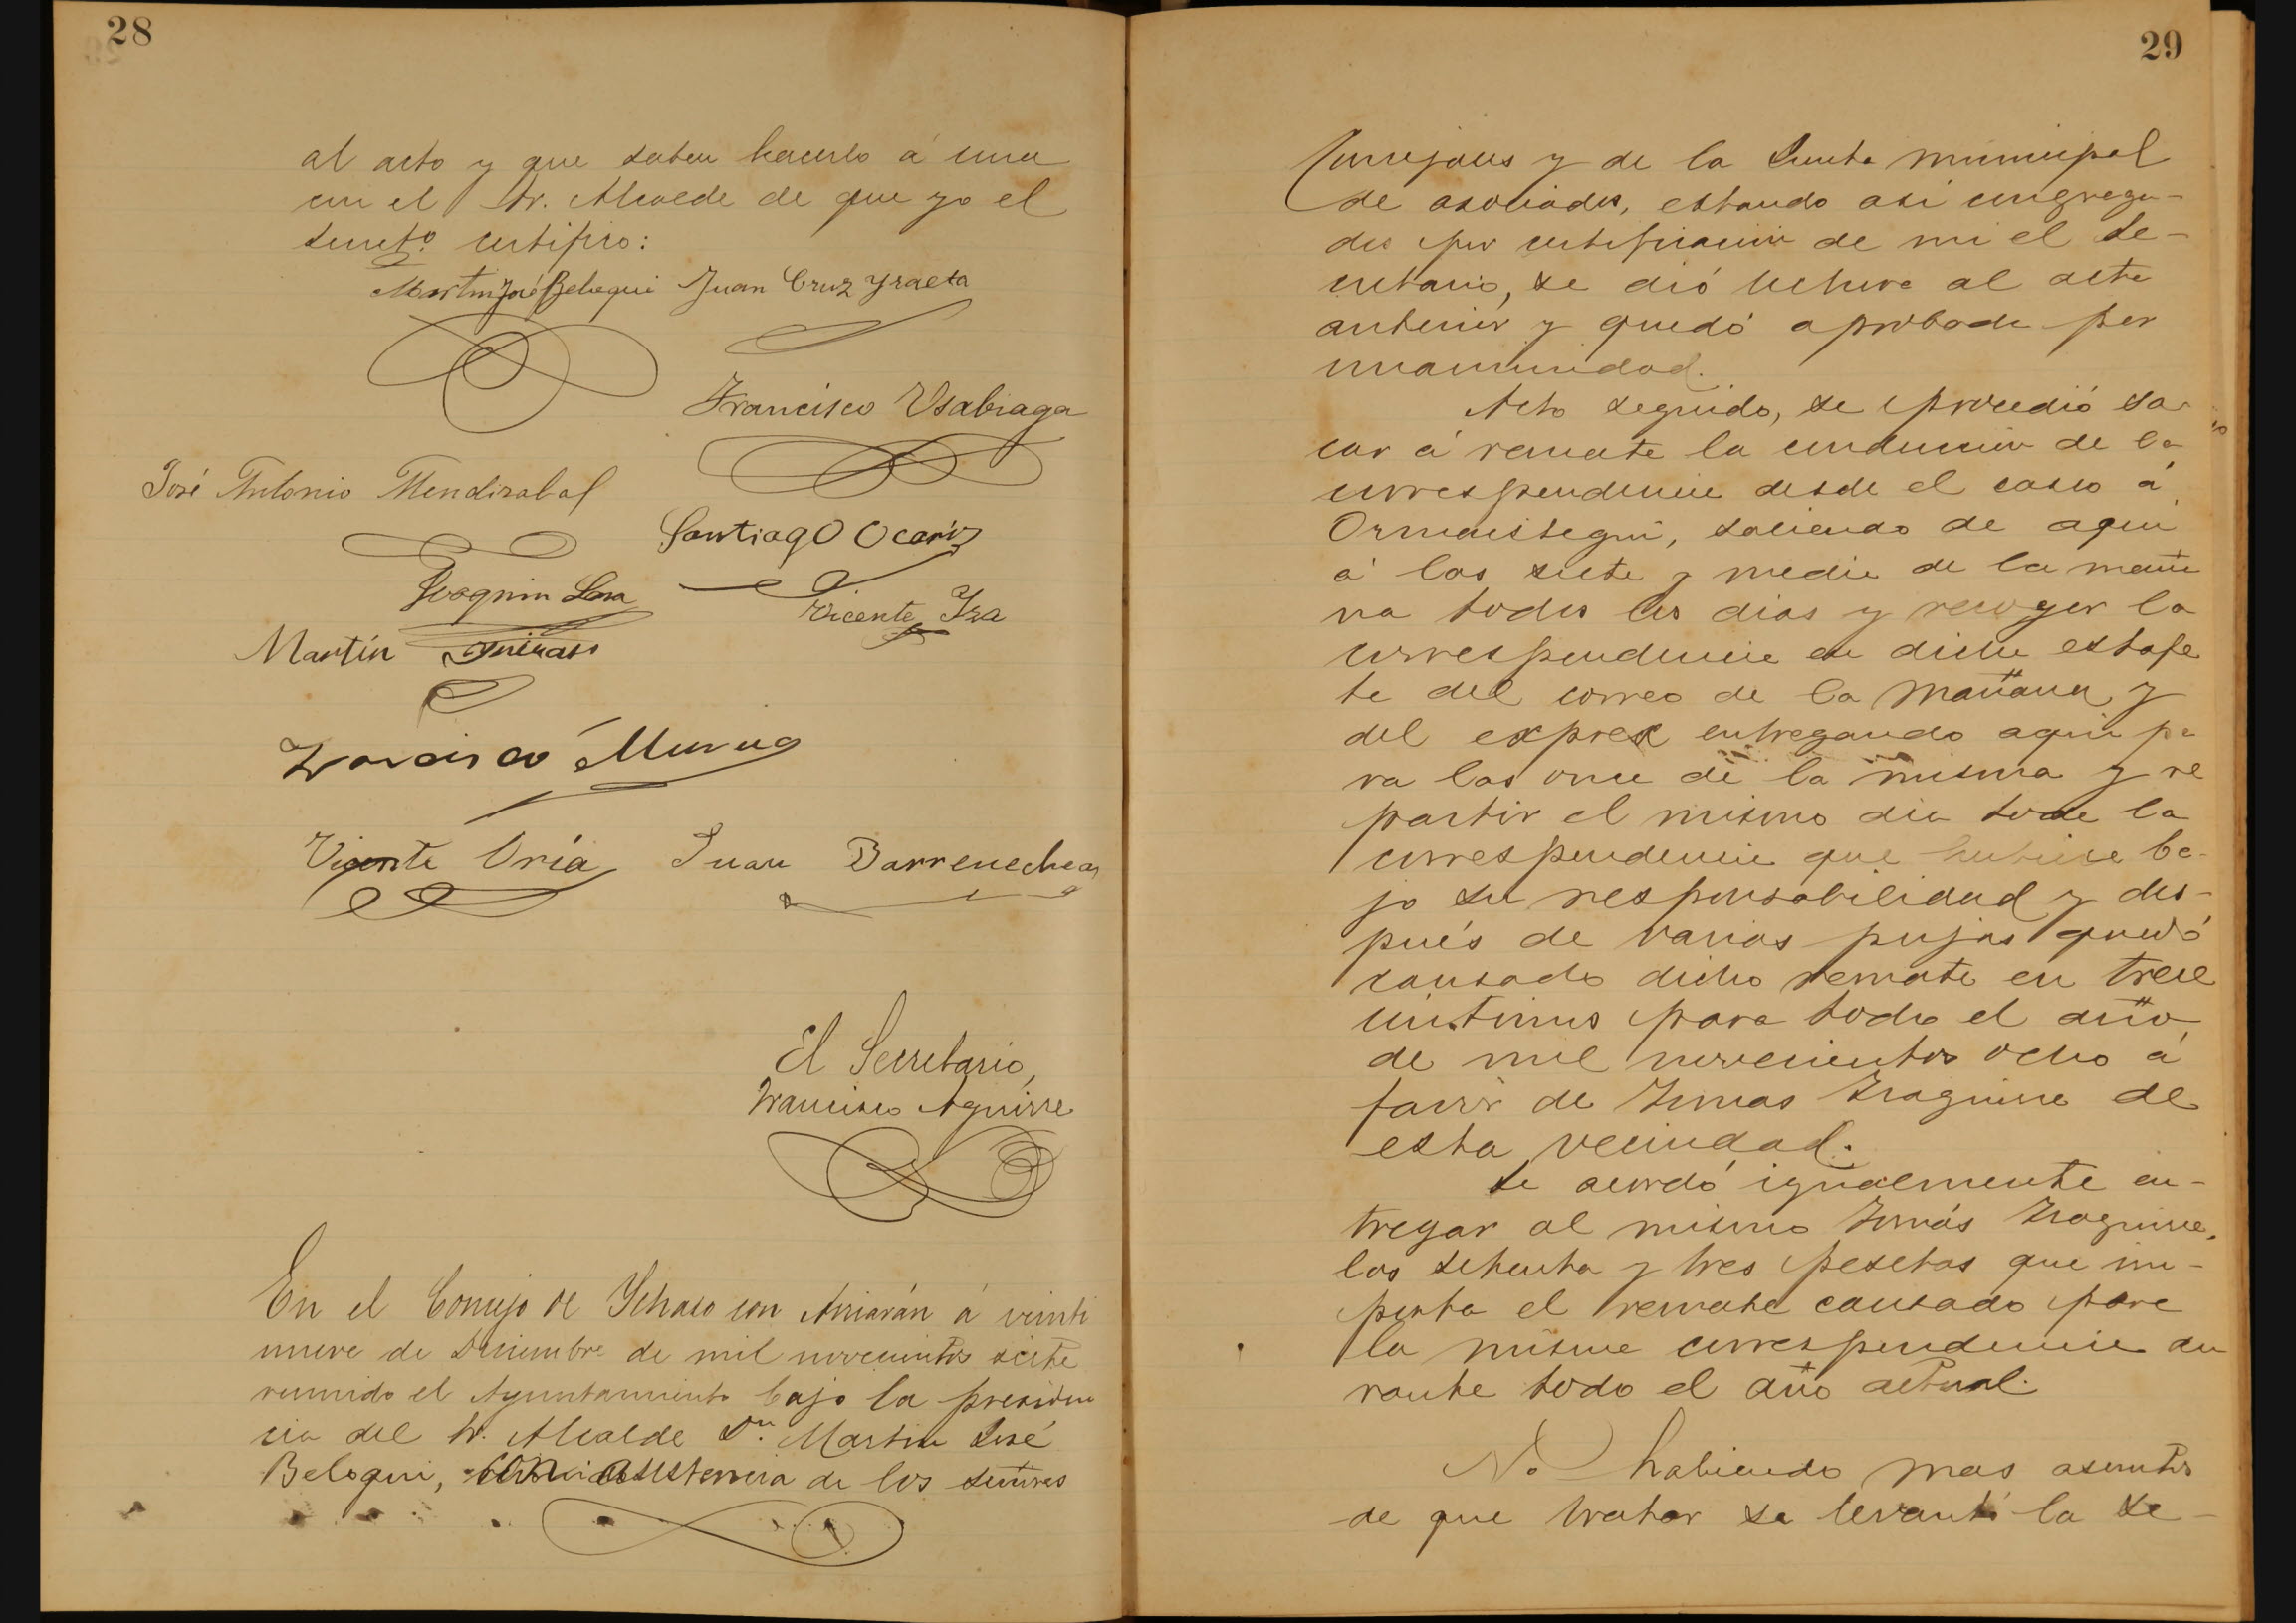 28
al acto y que saben hacerlo á una
con el Sr. Alcalde de que yo el
Secretº certifico:
Martin José Beloqui Juan Cruz Yraeta
Francisco Usabiaga
José Antonio Mendizabal
Santiago Ocariz
Joaquin Lasa
Vicente Iza
Martín
Francisco Murua
Vicente Oría Juan Barrenechea
El Secretario,
Francisco Aguirre
En el Concejo de Ychaso con Arriarán á veinti
nueve de Diciembre de mil novecientos siete
reunido el Ayuntamiento bajo la presiden
cia del Sr. Alcalde Dn. Martin José
Beloqui, con asistencia de los señores
29
Concejales y de la Junta municipal
de asociados, estando asi congrega-
dos por certificacion de mi el Se-
cretario, se dió lectura al acta
anterior y quedó aprobada por
unanimidad.
Acto seguido, se procedió sa-
car á remate la conduccion de la
correspondencia desde el casco á
Ormaiztegui, saliendo de aqui
á las siete y media de la maña
na todos los dias y recoger la
correspondencia en dicha estafe
ta del correo de la mañana y
del expres entregando aqui pa
ra las once de la misma y re
partir el mismo dia toda la
correspondencia que hubiese ba-
jo su responsabilidad y des-
pués de varias pujas quedó
causado dicho remate en trece
centimos para todo el año
de mil novecientos ocho á
favor de Tomas Izaguirre de
esta vecindad.
Se acordó igualmente en-
tregar al mismo Tomás Izaguirre,
las setenta y tres pesetas que im-
porta el remate causado para
la misma correspondencia du
rante todo el año actual.
No habiendo mas asuntos
de que tratar se levantó la se-